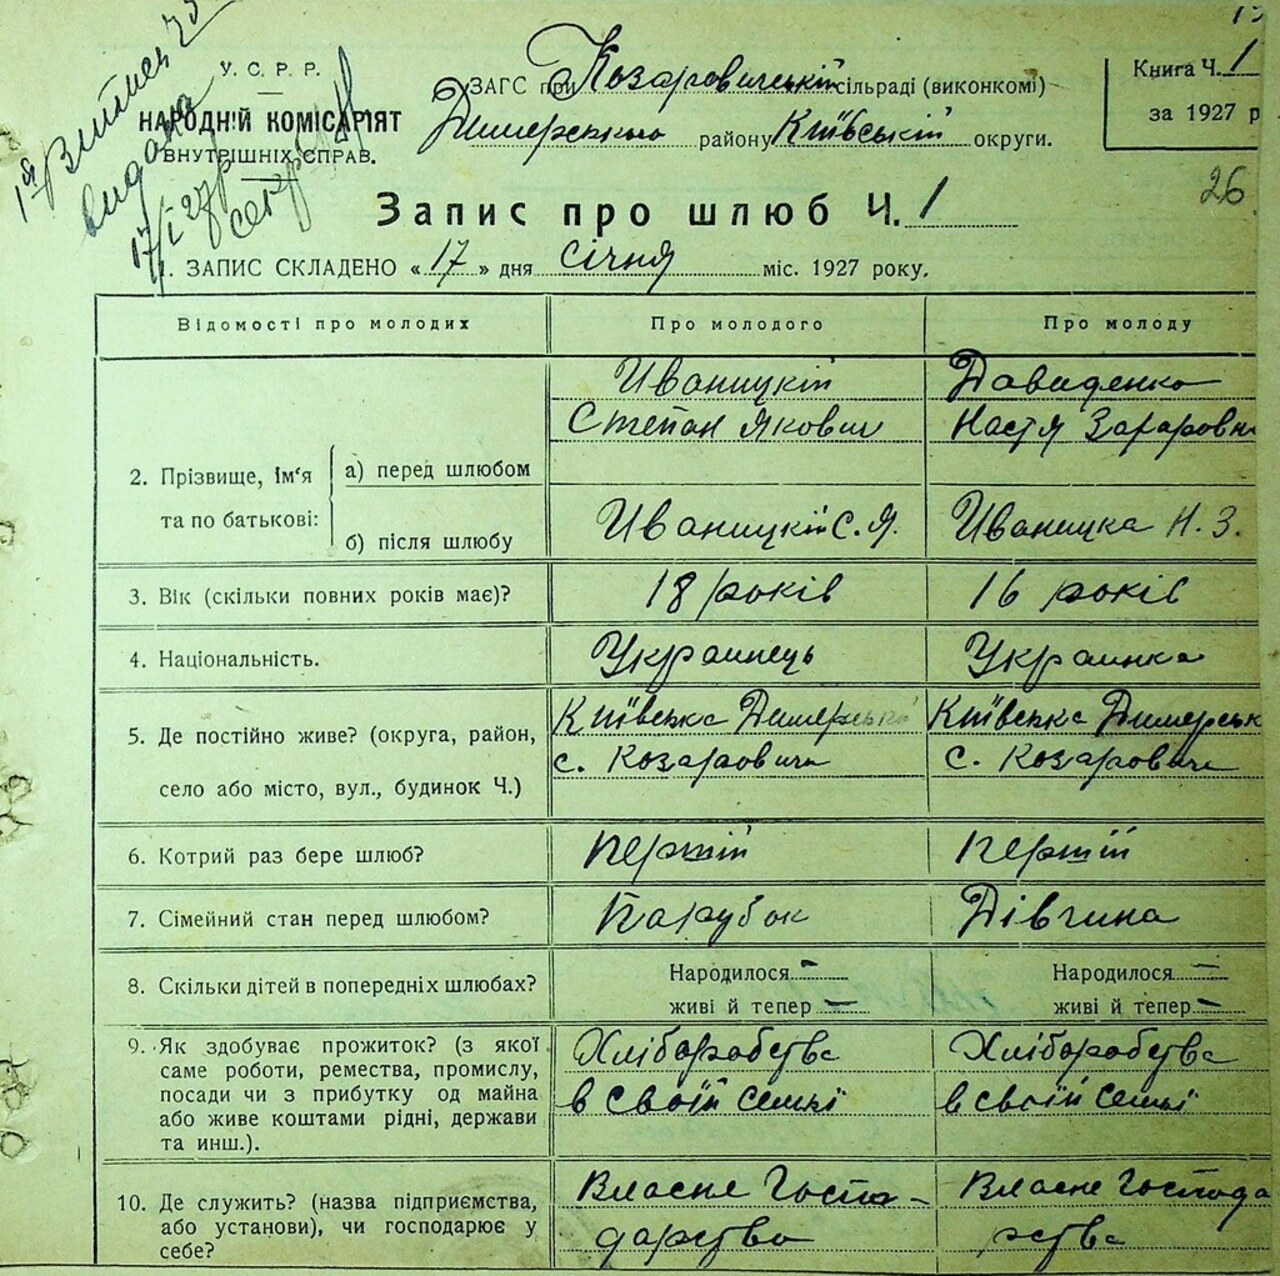 У. С. Р. Р.
НАРОДНІЙ КОМІСАРІЯТ
ВНУТРІШНІХ СПРАВ.
ЗАГС при Козаровичській сільраді (виконкомі)
Димерського району Київській округи.
Книга Ч. 1
за 1927 р
26
1ая Витись
видана
17/I 27 р
секр
Запис про шлюб Ч. 1
1. ЗАПИС СКЛАДЕНО «17» дня січня міс. 1927 року.
Відомості про молодих Про молодого Про молоду
2. Прізвище, ім'я та по батькові:
а) перед шлюбом
Иваницкій Давиденко
Степан Якович Настя Захаровн
б) після шлюбу
Иваницкій С. Я. Иваницка Н. З.
3. Вік (скільки повних років має)? 18 років 16 років
4. Національність. Украинець Украинка
5. Де постійно живе? (округа, район,
село або місто, вул., будинок Ч.)
Київська Димерські Київська Димерськ
с. Козаровичи с. Козаровичи
6. Котрий раз бере шлюб? перший перший
7. Сімейний стан перед шлюбом? Парубок Дівчина
8. Скільки дітей в попередніх шлюбах?
Народилося – Народилося –
живі й тепер – живі й тепер –
9. Як здобуває прожиток? (з якої
саме роботи, ремества, промислу,
посади чи з прибутку од майна
або живе коштами рідні, держави
та инш.).
Хліборобства Хліборобства
в своїй семьі в своїй семьі
10. Де служить? (назва підприємства,
або установи), чи господарює у
себе?
Власне Госпо- Власне Господа
дарство рства